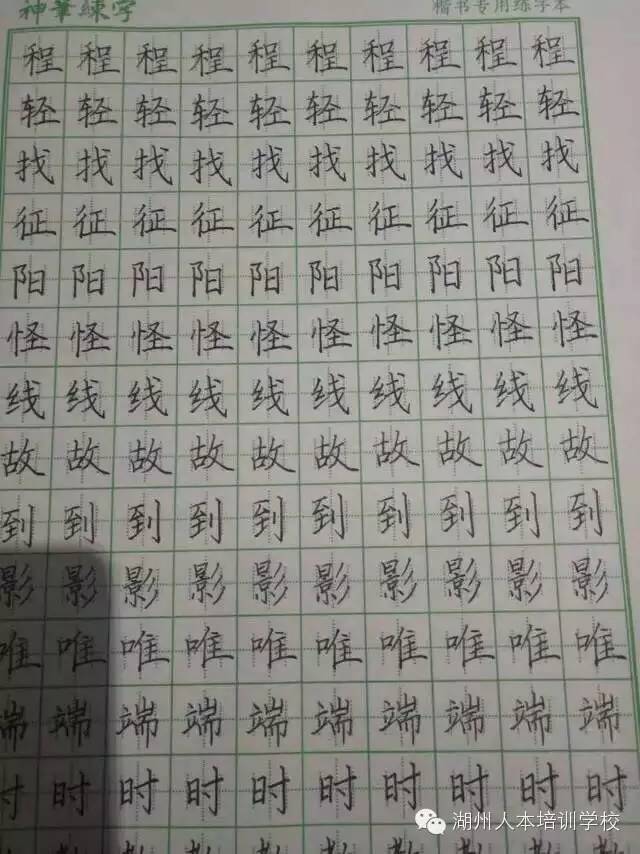 神筆練字 楷书专用练字本
程 程 程 程 程 程 程 程 程 程
轻 轻 轻 轻 轻 轻 轻 轻 轻 轻
找 找 找 找 找 找 找 找 找 找
征 征 征 征 征 征 征 征 征 征
阳 阳 阳 阳 阳 阳 阳 阳 阳 阳
怪 怪 怪 怪 怪 怪 怪 怪 怪 怪
线 线 线 线 线 线 线 线 线 线
故 故 故 故 故 故 故 故 故 故
到 到 到 到 到 到 到 到 到 到
影 影 影 影 影 影 影 影 影 影
唯 唯 唯 唯 唯 唯 唯 唯 唯 唯
端 端 端 端 端 端 端 端 端 端
时 时 时 时 时 时 时 时 时 时
湖州人本培训学校